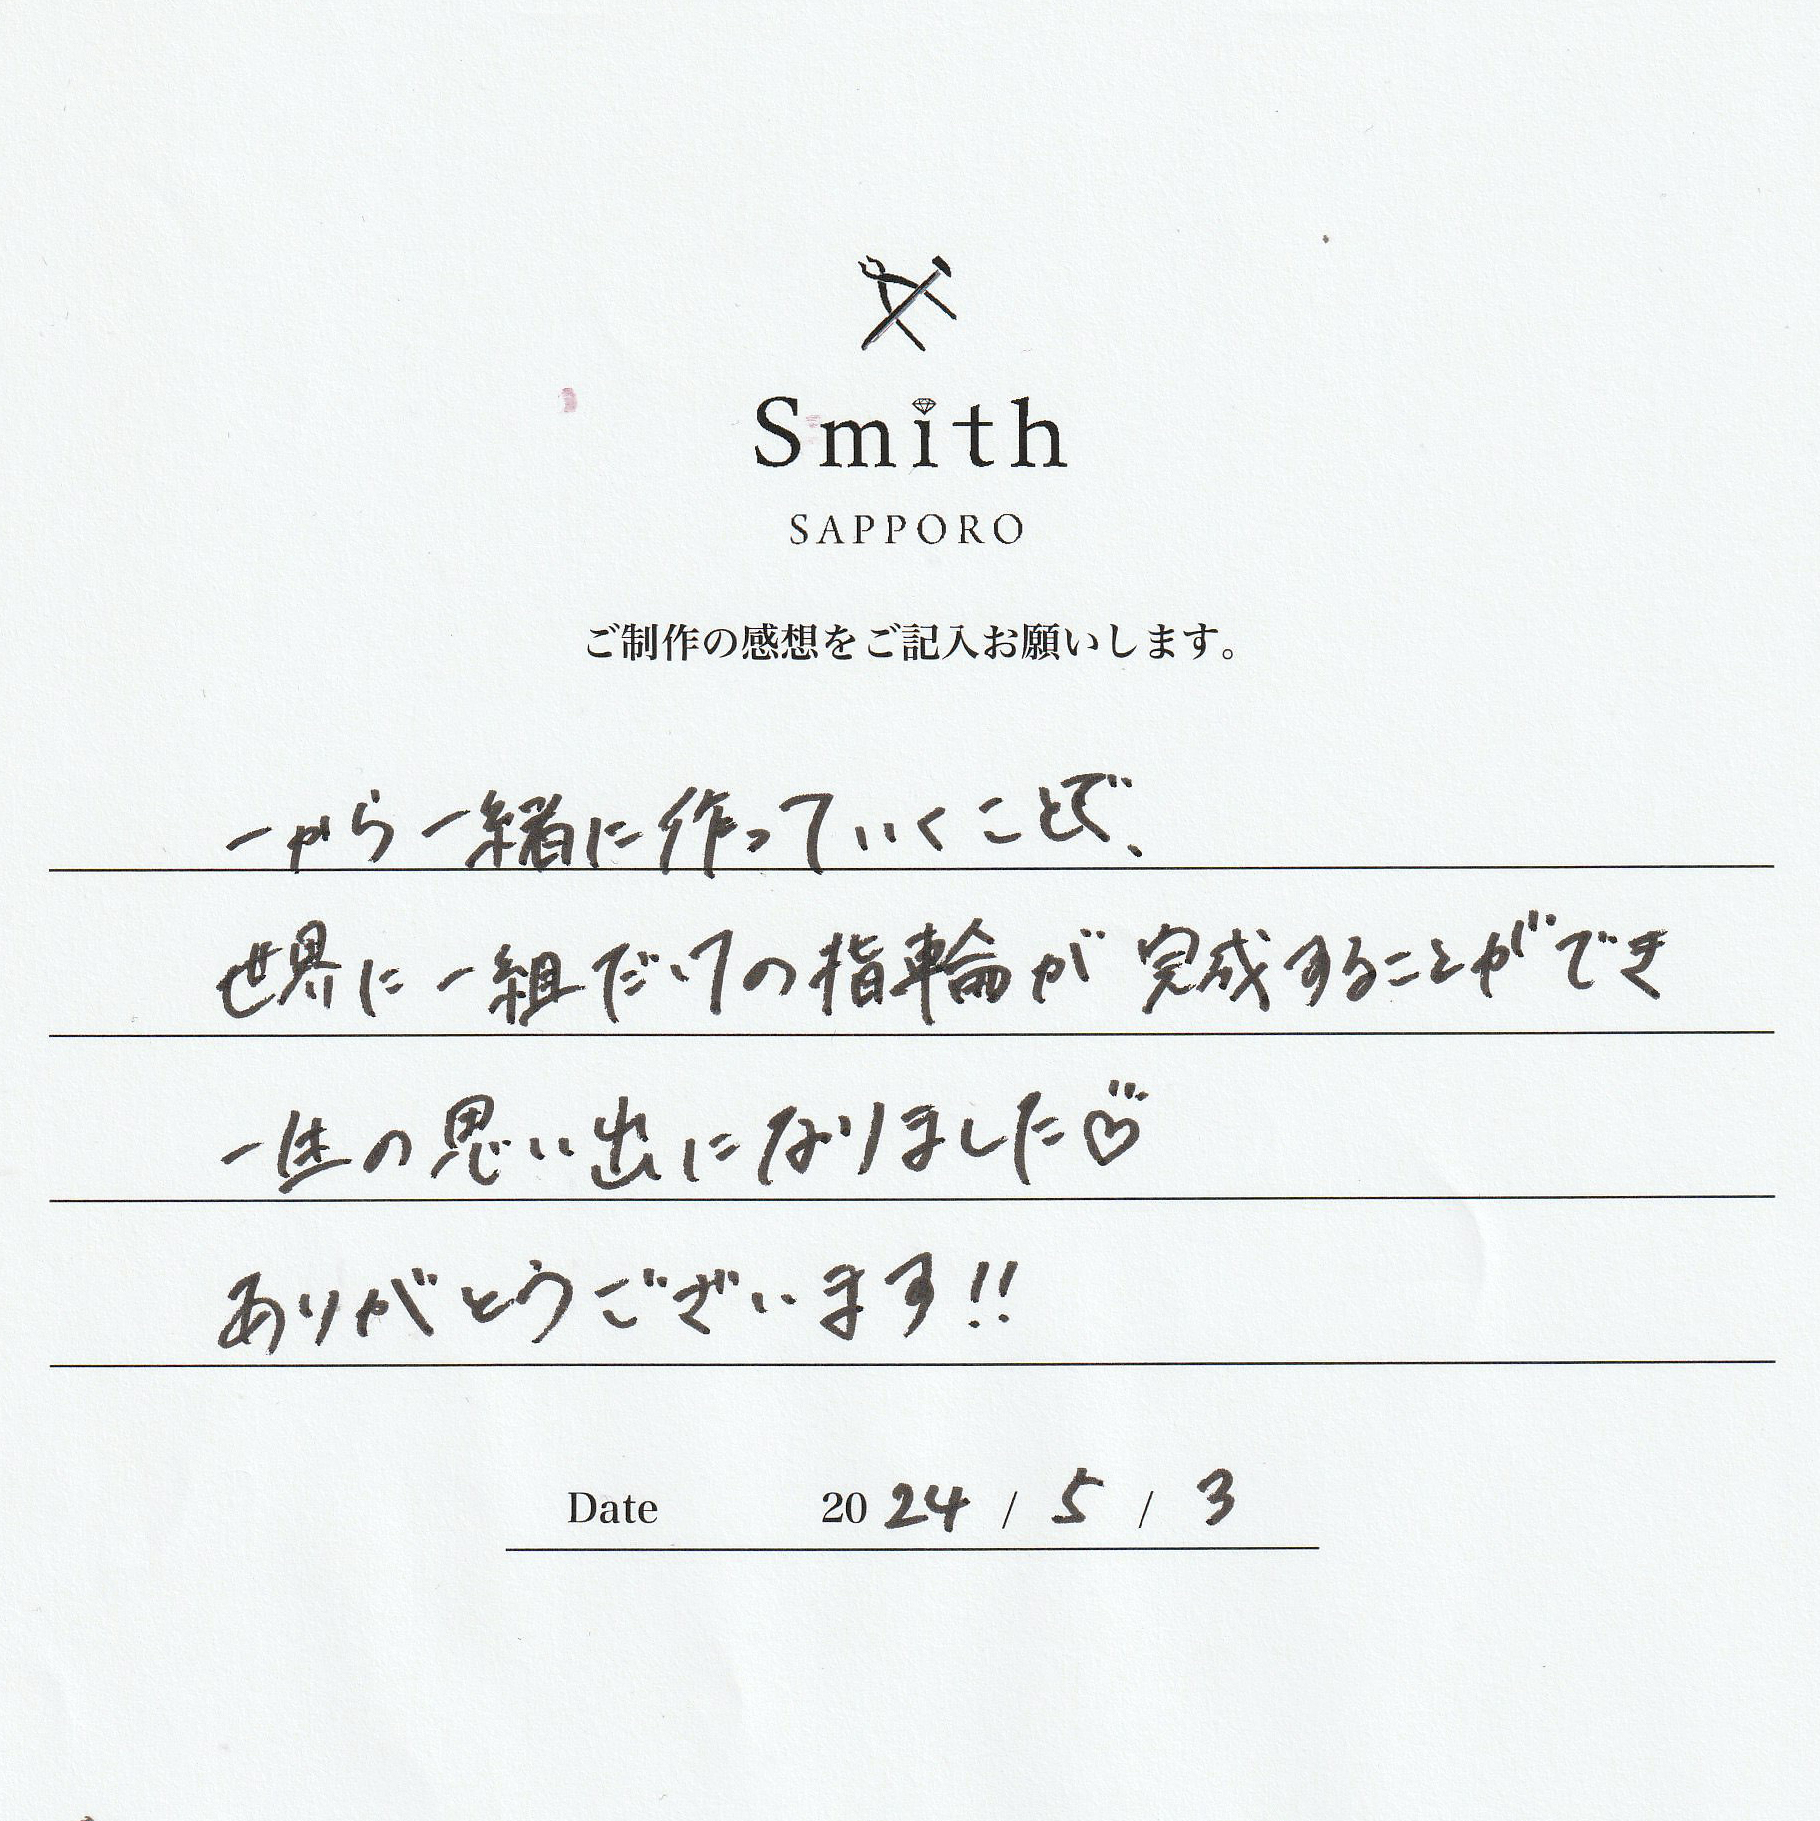 Smith
SAPPORO
ご制作の感想をご記入お願いします。
一から一緒に作っていくことで、
世界に一組だけの指輪が完成することができ
一生の思い出になりました♡
ありがとうございます!!
Date 2024 / 5 / 3